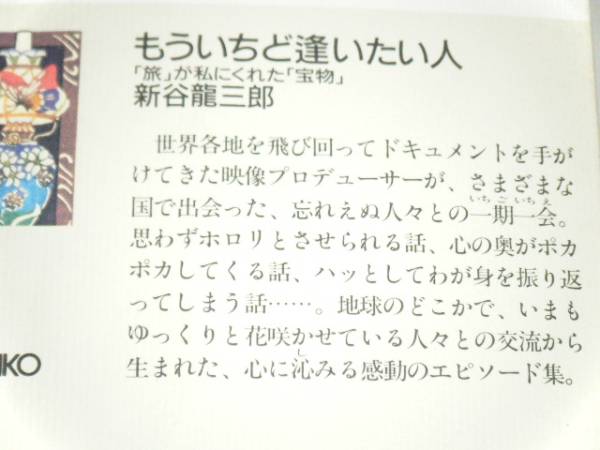 もういちど逢いたい人
「旅」が私にくれた「宝物」
新谷龍三郎
世界各地を飛び回ってドキュメントを手が
けてきた映像プロデューサーが、さまざまな
いちごいちえ
国で出会った、忘れえぬ人々との一期一会。
思わずホロリとさせられる話、心の奥がポカ
ポカしてくる話、ハッとしてわが身を振り返
ってしまう話……。地球のどこかで、いまも
ゆっくりと花咲かせている人々との交流から
し
生まれた、心に沁みる感動のエピソード集。